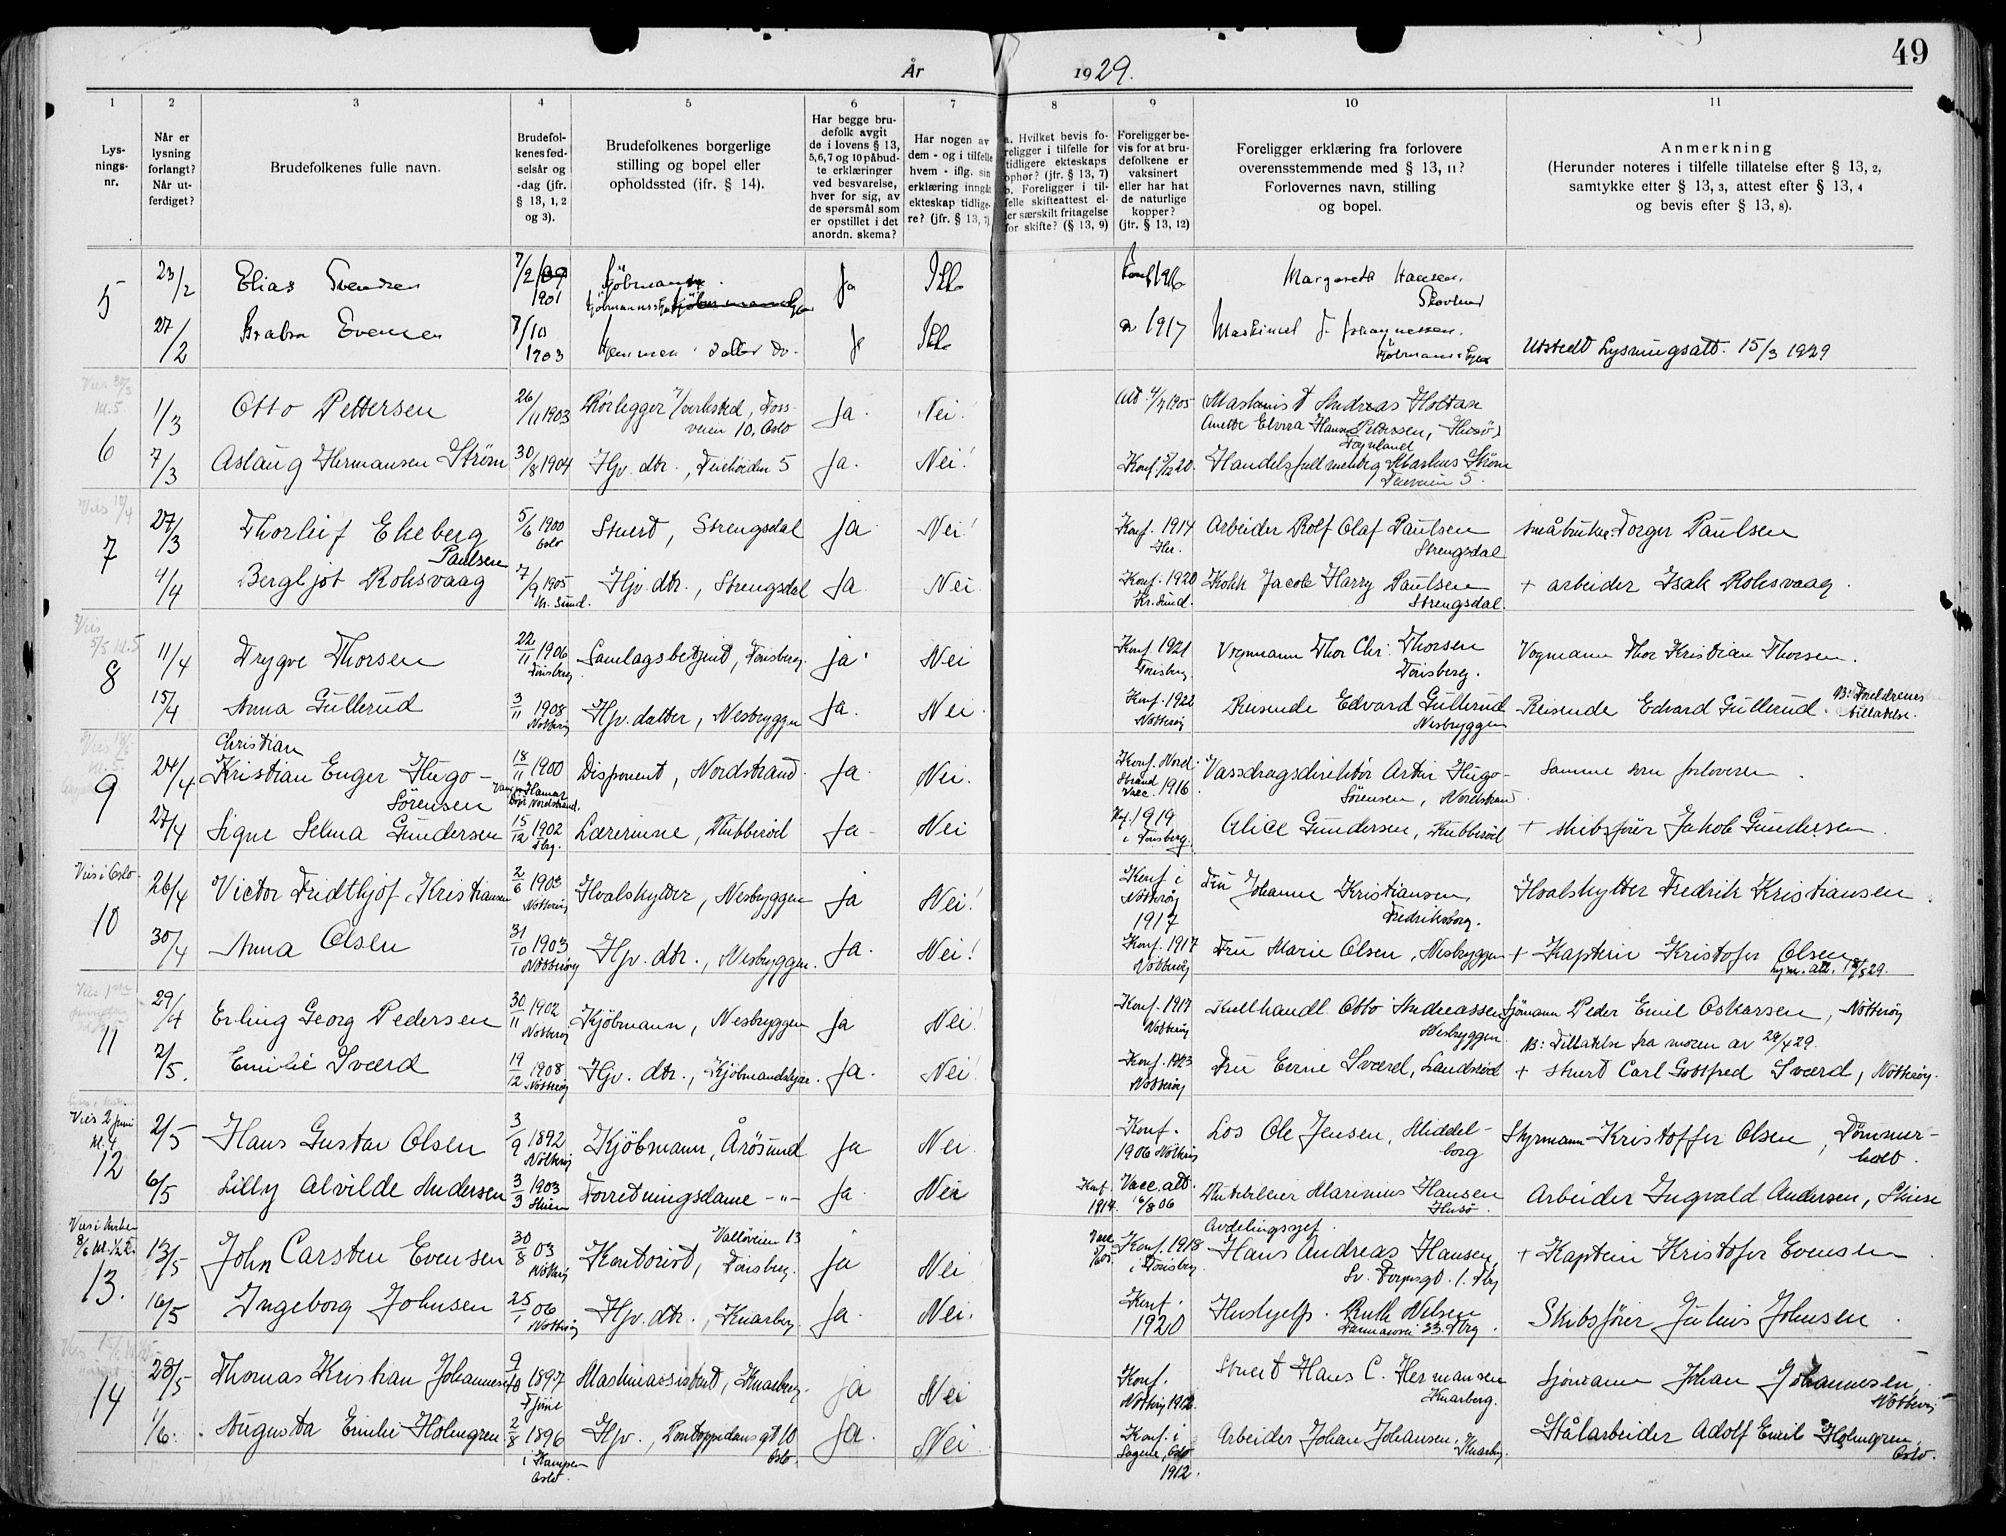 49
År 1929.
1 2 3 4 5 6 7 8 9 10 11
Lysningsnr.
Når er lysning forlangt? Når utferdiget?
Brudefolkenes fulle navn.
Brudefolkenes fødselsår og -dag (jfr. § 13, 1, 2 og 3).
Brudefolkenes borgerlige stilling og bopel eller opholdssted (ifr. § 14).
Har begge brudefolk avgit de i lovens § 13, 5, 6, 7 og 10 påbudte erklæringer ved besvarelse, hver for sig, av de spørsmål som er opstillet i det anordn. skema?
Har nogen av dem - og i tilfelle hvem - iflg. sin erklæring inngått ekteskap tidligere? (jfr. § 13, 7)
a. Hvilket bevis foreligger i tilfelle for tidligere ekteskaps ophør? (§ 13, 7)
b. Foreligger i tilfelle skifteattest eller særskilt fritagelse for skifte? (§ 13, 9)
Foreligger bevis for at brudefolkene er vaksinert eller har hat de naturlige kopper? (jfr. § 13, 12)
Foreligger erklæring fra forlovere overensstemmende med § 13, 11? Forlovernes navn, stilling og bopel.
Anmerkning
(Herunder noteres i tilfelle tillatelse efter § 13, 2, samtykke etter § 13, 3, attest efter § 13, 4 og bevis efter § 13, 8).
5 23/2 Elias Svendsen 7/2 1901 Ja Ikke Konf 1916 Margareth Hansen,
27/2 Evensen 7/10 1903 Ja Ikke 1917 Maskinist J. Johannessen. Utstedt Lysningsatt. 15/3 1929
6 1/3 Otto Pettersen 26/11 1903 Rørlegger v/verksted, Fossveien 10, Oslo Ja. Nei. Maskinist Andreas Holtan
7/3 Aslaug Hermansen Strøm 30/8 1904 Hjv. dtr., 5 Ja. Nei! Strøm
7 27/3 Thorleif Ekeberg Paulsen 5/6 1900 Oslo Stuert, Strengsdal Ja Nei! Konf. 1914 Arbeider Rolf Olaf Paulsen Strengsdal småbruker Torger Paulsen
4/4 Bergljot Roksvaag 7/9 1905 Kr. Sund. Hjv. dtr., Strengsdal Ja. Nei. Konf. 1920 Kr. Sund. Kokk Jacob Harry Paulsen Strengsdal. + arbeider Isak Roksvaag.
8 11/4 Trygve Thorsen 22/11 1906 Tønsberg Samlagsbetjent, Tønsberg. Ja Nei Konf. 1921 Tønsberg Vognmann Thor Chr. Thorsen Tønsberg. Vognmann Thor Kristian Thorsen.
15/4 Anna Gullerud 3/11 1908 Nøtterøy Hjv. datter, Nesbryggen Ja. Nei. Konf. 1922 Nøtterøy Reisende Edvard Gullerud Nesbryggen Reisende Edvard Gullerud. NB: Foreldrenes tillatelse.
9 24/4 Christian Kristian Enger Hugo-Sørensen 18/11 1900 Disponent, Nordstrand. Ja. Nei. Konf. Nordstrand 1916 Vassdragsdirektør Artur Hugo-Sørensen, Nordstrand Samme som forloveren.
27/4 Signe Selma Gundersen 15/12 1902 Tbg. Lærerinne, Stubberød Ja Nei Kf. 1919 i Tønsberg Alice Gundersen, Stubberød + skibsfører Jakob Gundersen.
Vies i Oslo
10 26/4 Victor Fridthjof Kristiansen 2/6 1903 Nøtterøy Hvalskytter, Nesbryggen Ja Nei! Konf. i Nøtterøy 1917 Fru Johanne Kristiansen Fredriksborg. Hvalskytter Fredrik Kristiansen.
30/4 Anna Olsen 31/10 1903 Nøtterøy Hjv. dtr., Nesbryggen. Ja. Nei! Konf. 1917 Nøtterøy Fru Marie Olsen, Nesbryggen + Kaptein Kristofer Olsen
11 29/4 Erling Georg Pedersen 30/11 1902 Nøtterøy Kjøbmann, Nesbryggen Ja Nei! Konf. 1917 Nøtterøy Kullhandl. Otto Andreassen Nesbryggen Sjømann Peder Emil Oskarsen, Nøtterøy
NB: Tillatelse fra moren av 29/4 29.
2/5. Emilie Sværd 19/12 1908 Nøtterøy Hjv. dtr., Ja. Nei! Konf. 1923 Nøtterøy Fru Sværd, + stuert Carl Gottfred Sværd, Nøtterøy.
Vies 2 juni kl. 4
12 2/5 Hans Gustav Olsen 3/9 1892 Nøtterøy Kjøbmann, Årøsund Ja Nei Konf. 1906 Nøtterøy Los Ole Jensen, Middelborg Styrmann Kristoffer Olsen, Tømmerholt.
6/5 Lilly Alvilde Andersen 3/3 1903 Skien Forretningsdame -"- Ja. Nei Vacc. att. 16/8 06 Marinius Hansen Husø. Arbeider Ingvald Andersen, Skien
13. 13/5 John Carsten Evensen 30/8 03 Nøtterøy Kontorist, Valløveien 13 Tønsberg. Ja Nei Konf. 1918 i Tønsberg Avdelingssjef. Hans Andreas Hansen, + Kaptein Kristofer Evensen.
16/5 Ingeborg Johnsen 25/1 06 Nøtterøy Hjv. dtr., Knarberg. Ja. Nei. Konf. 1920 Hushjelp. Ruth Nilsen Skibsfører Julius Johnsen.
14 28/5 Thomas Kristian Johannesen 1897 Tjøme Maskinassistent, Knarberg. Ja Nei Konf. Nøtterøy 1912 Stuert Hans C. Hermansen Knarberg. Sjømann Johan Johannesen, Nøtterøy
1/6. Augusta Emilie Holmgren 2/8 1896 i Kampen Oslo. Hjv., Pontoppidans gt 10 Oslo. Ja. Nei Konf. i Sagene, Oslo 1912. Arbeider Johan Johansen, Knarberg. Stålarbeider Adolf Emil Holmgren, Oslo.